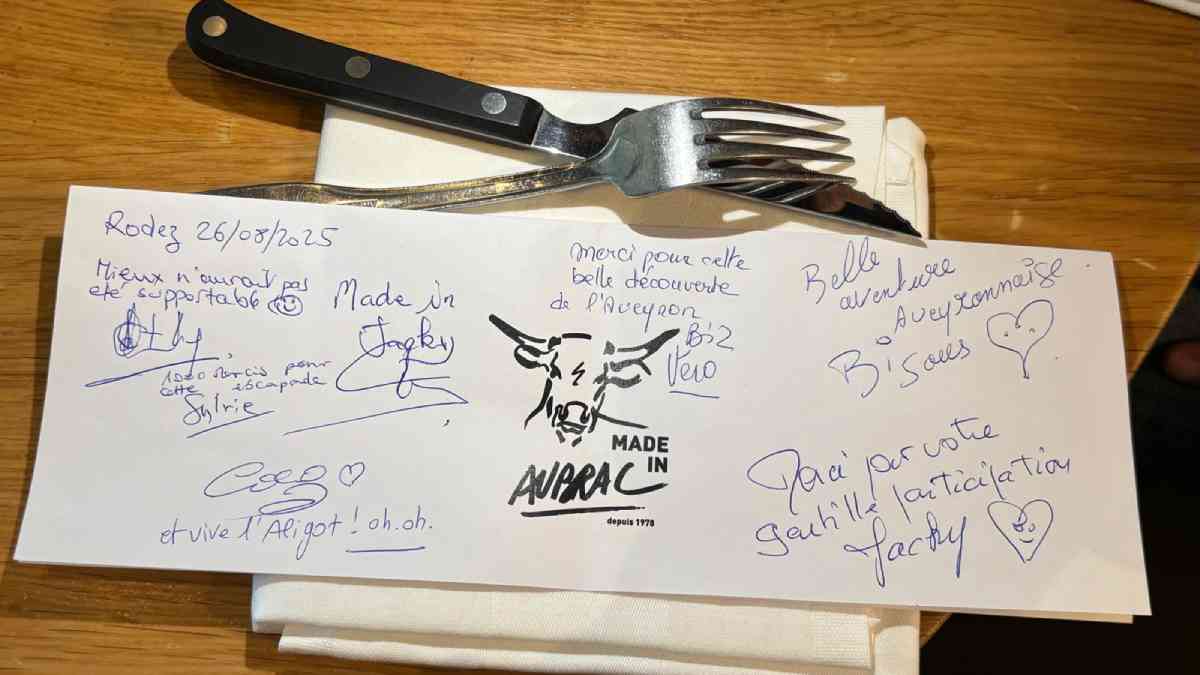 Rodez 26/08/2025
Mieux n'aurait pas
été supportable
Made in
Jacky
1000 mercis pour
cette escapade
Sylvie
Coco
et vive l'Aligot ! oh.oh.
merci pour cette
belle découverte
de l'Aveyron
Biz
Véro
MADE
IN
AUBRAC
depuis 1978
Belle
aventure
Aveyronnaise.
Bisous
Merci par votre
gentille participation
Jacky